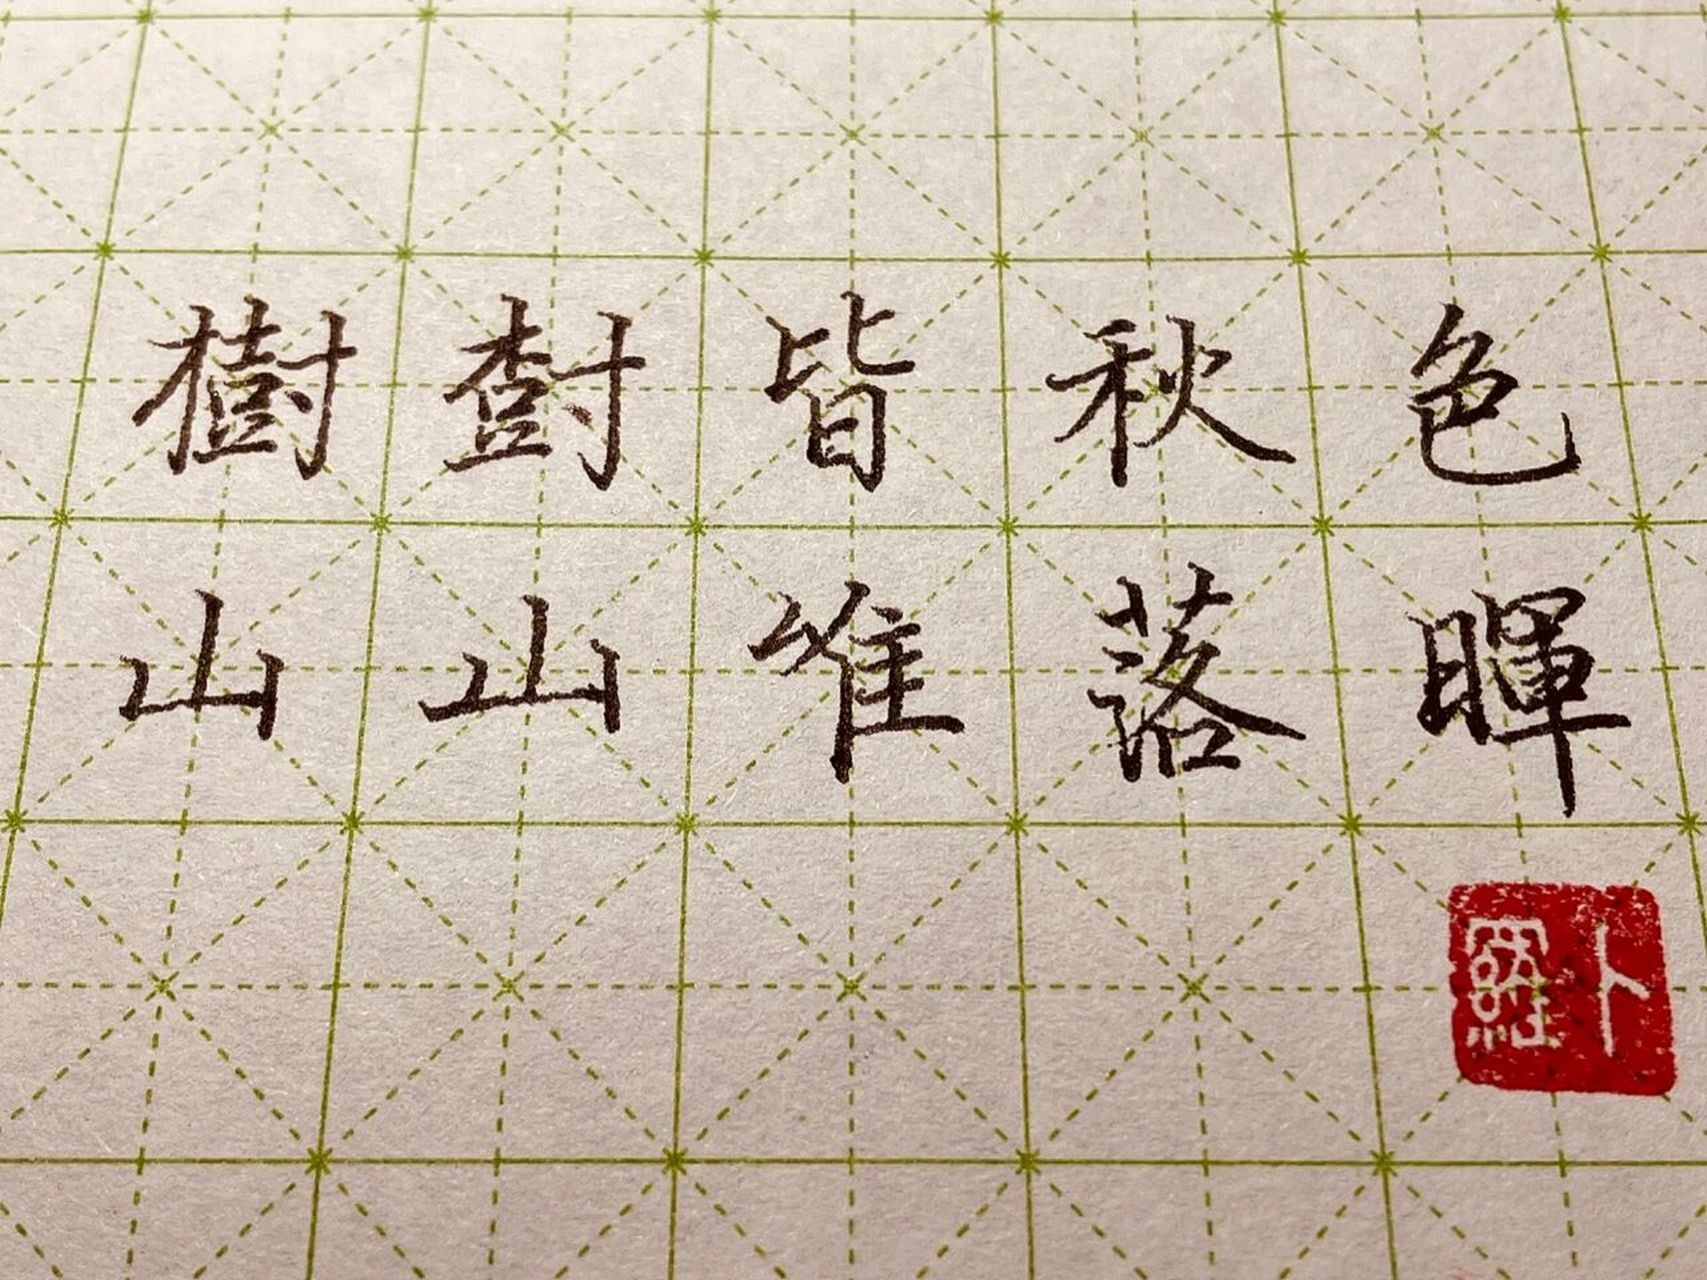 樹樹皆秋色
山山唯落暉
卜